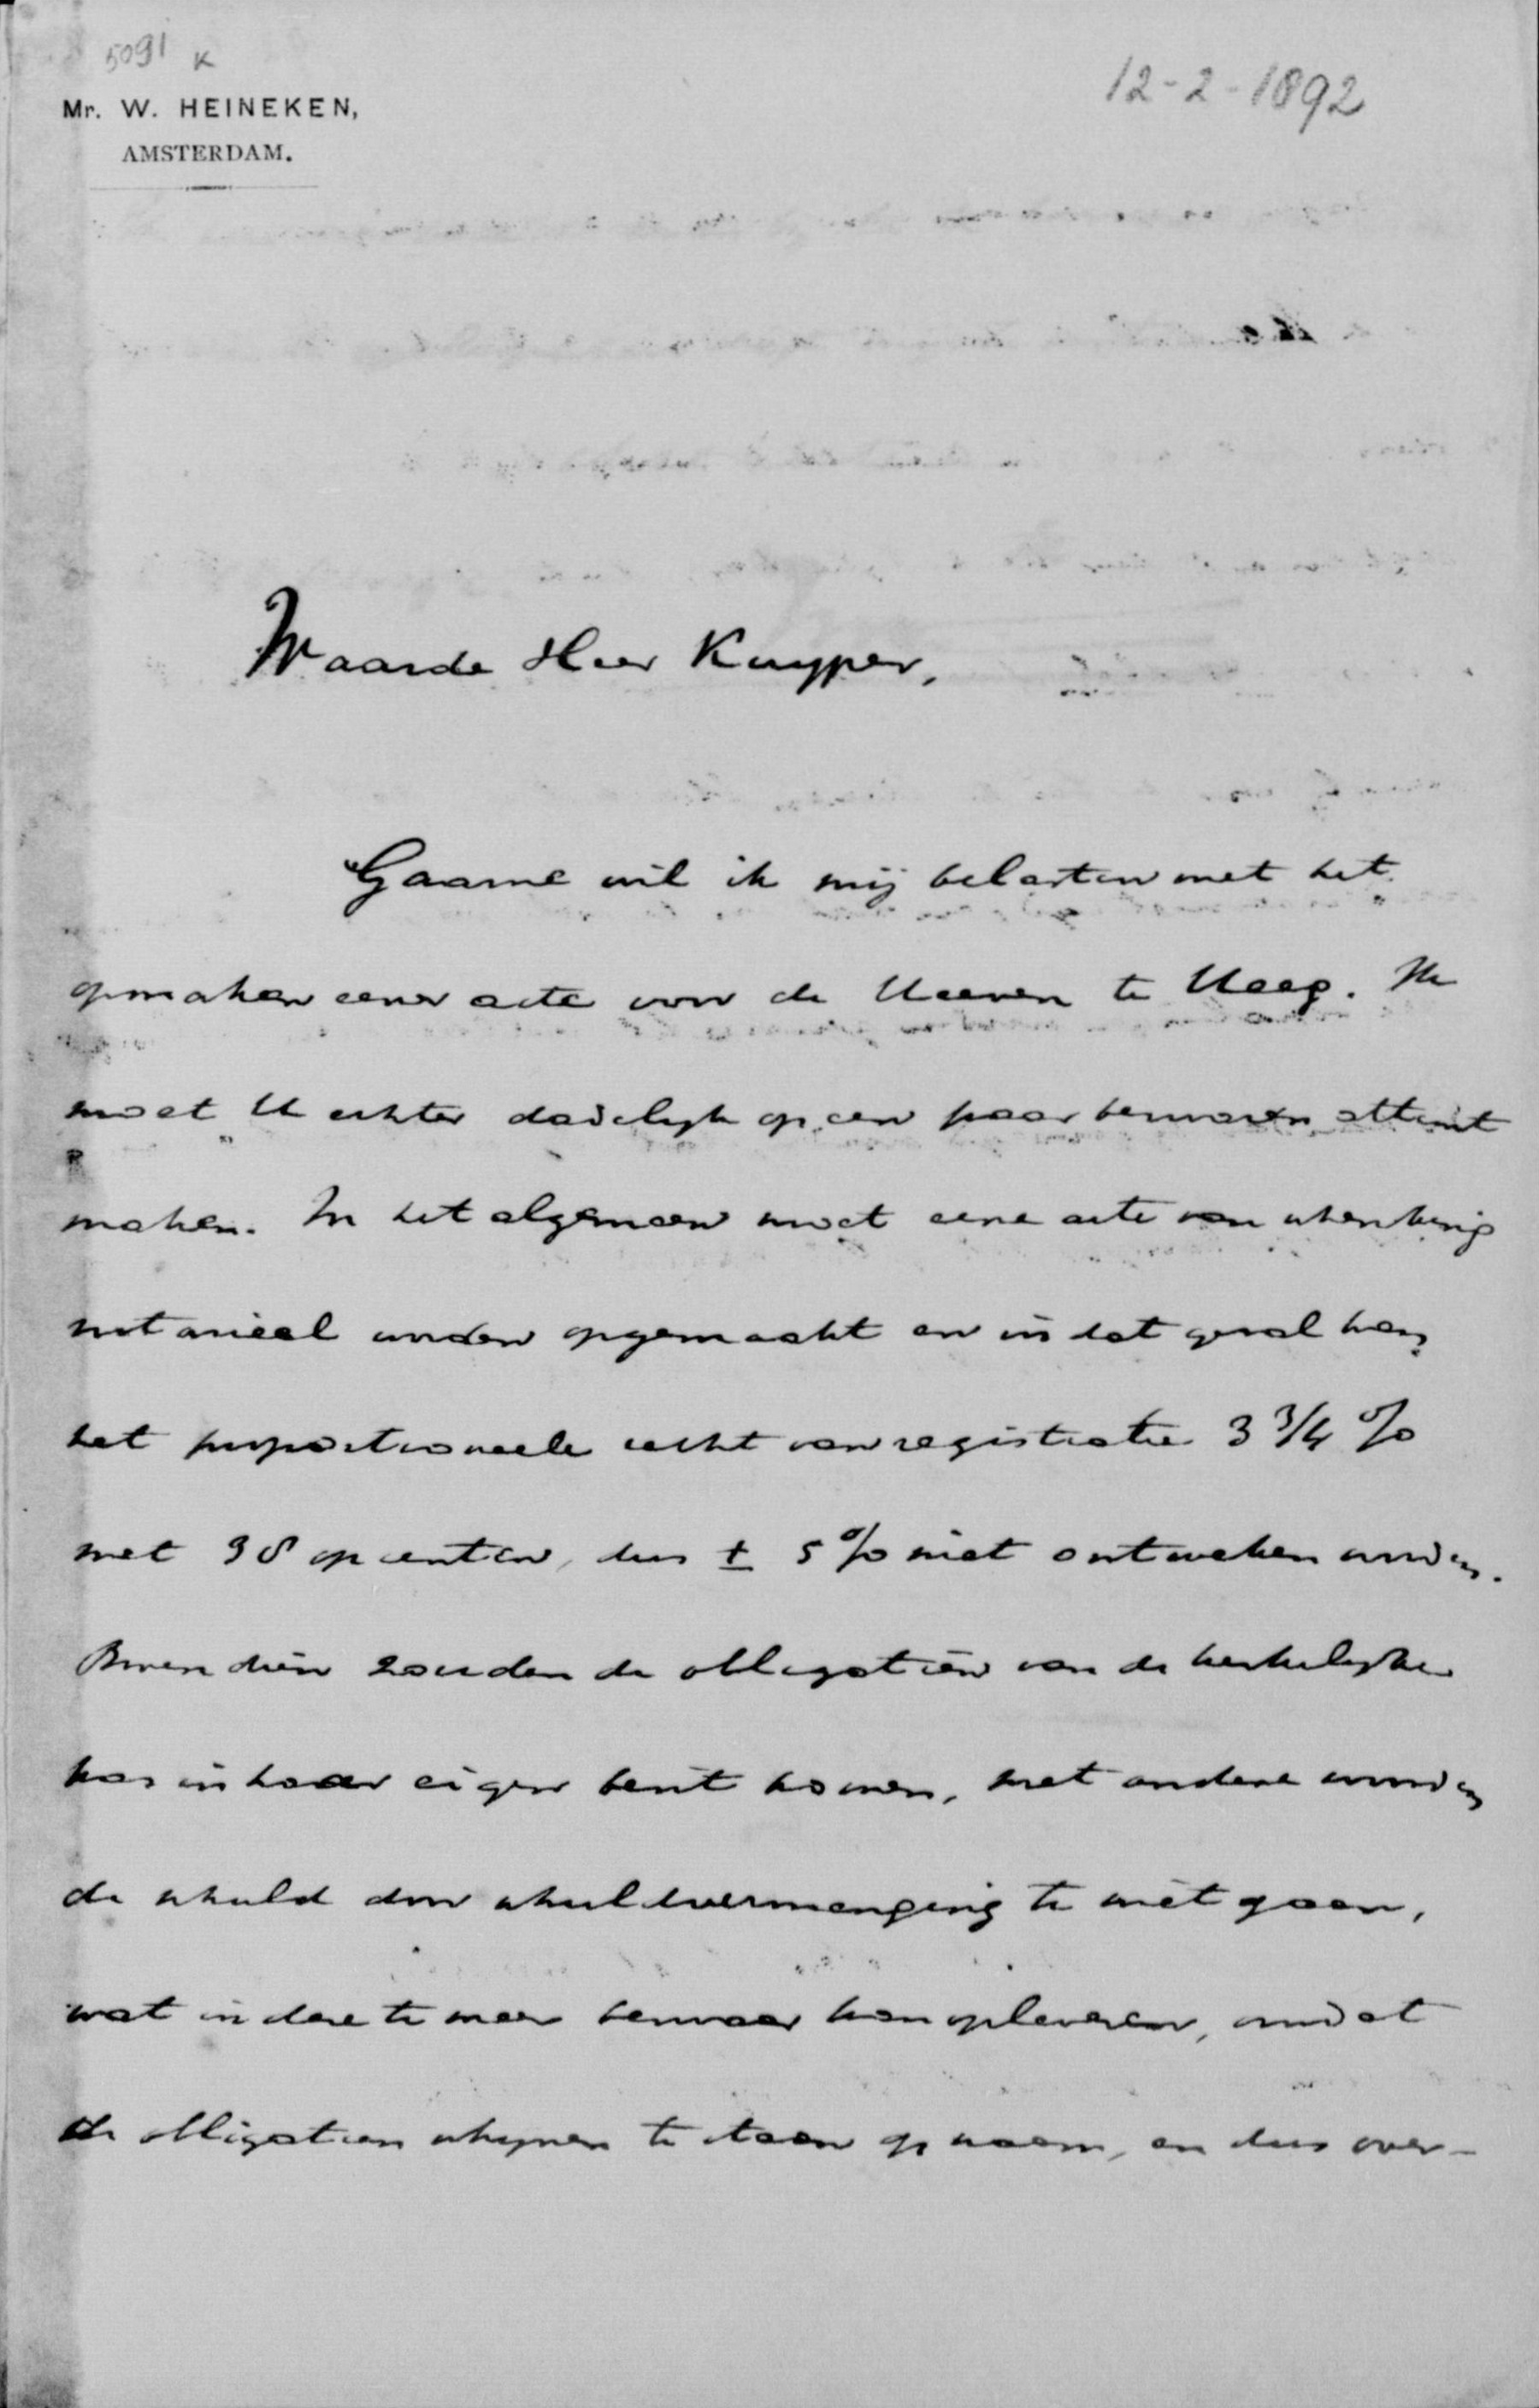 5091 K
Mr. W. HEINEKEN,
AMSTERDAM.
12-2-1892
Waarde Heer Kuyper,
Gaarne wil ik mij belasten met het
opmaken eener acte voor de Heeren te Haag. Ik
moet U echter dadelijk op een paar bezwaren attent
maken. In het algemeen moet eene acte van schenking
notarieel worden opgemaakt en in dat geval kan
het proportioneele recht van registratie 3 3/4 %
met 38 opcenten, dus ± 5 % niet ontweken worden.
Bovendien zouden de obligatiën van de kerkelijke
kas in haar eigen bezit komen, met andere woorden
de schuld door schuldvermenging te niet gaan,
wat in deze te meer bezwaar kan opleveren, omdat
de obligatien schijnen te staan op naam, en dus over-